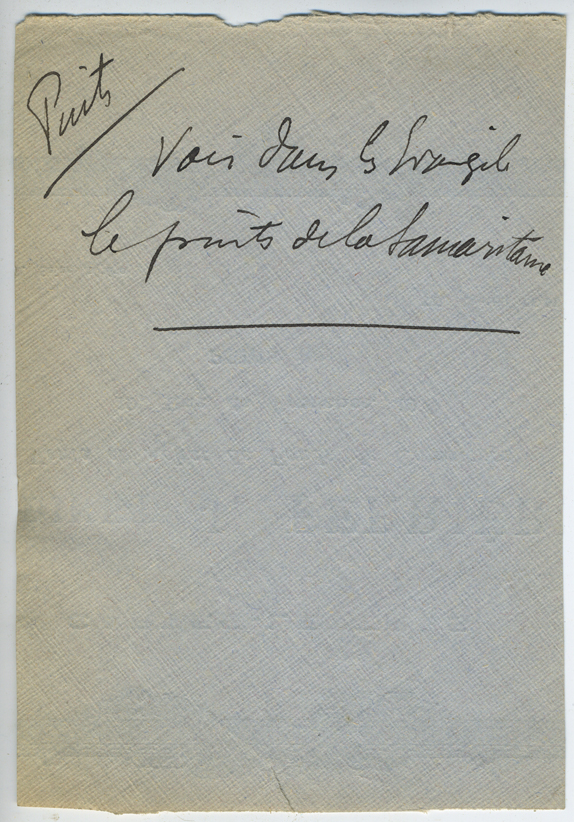 Puits
Voir dans les Evangile
le puits de la Samaritaine